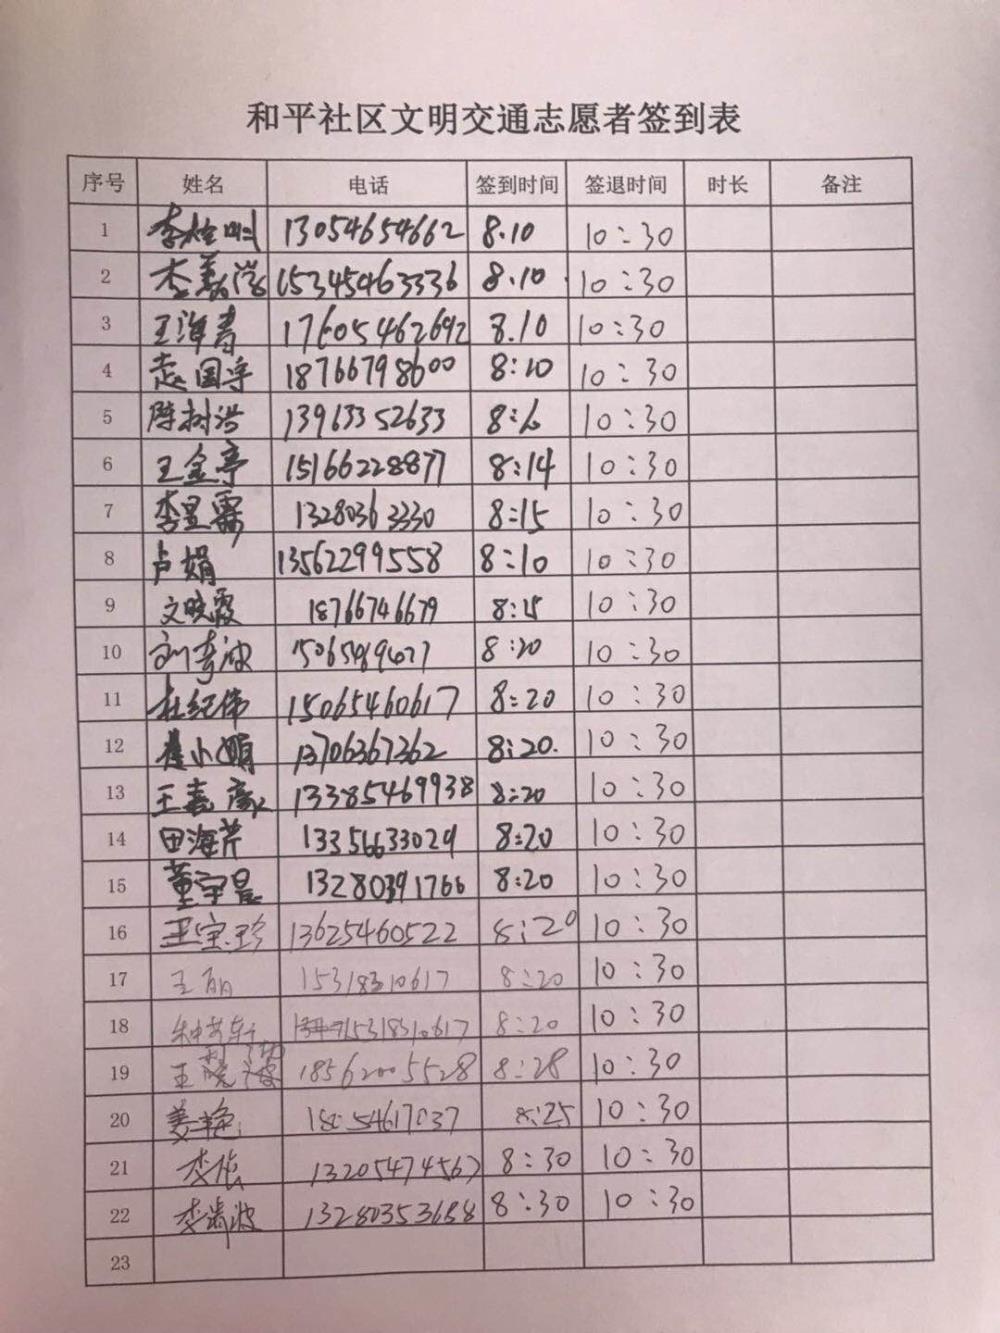 和平社区文明交通志愿者签到表
序号 姓名 电话 签到时间 签退时间 时长 备注
1 李 13054654662 8.10 10:30
2 李 15345463336 8.10 10:30
3 王海青 17605462692 8.10 10:30
4 赵国宇 18766798600 8:10 10:30
5 陈树浩 13963352633 10:30
6 王金亭 15166228877 8:14 10:30
7 李昱霖 13280363330 8:15 10:30
8 卢娟 13562299558 8:10 10:30
9 文晓霞 18766746679 8:15 10:30
10 刘 8:20 10:30
11 杜纪伟 15065460617 8:20 10:30
12 崔小娟 13706367362 8:20. 10:30
13 王嘉豪 13385469938 8:20 10:30
14 田海芹 13356633029 8:20 10:30
15 董宇晨 13280391766 8:20 10:30
16 王宝珍 13625460522 8:20 10:30
17 王丽 15318310617 8:20 10:30
18 15318310617 8:20 10:30
19 王 18562005528 8:28 10:30
20 姜艳 18054617037 8:25 10:30
21 李 13205474567 8:30 10:30
22 李 13280353688 8:30 10:30
23